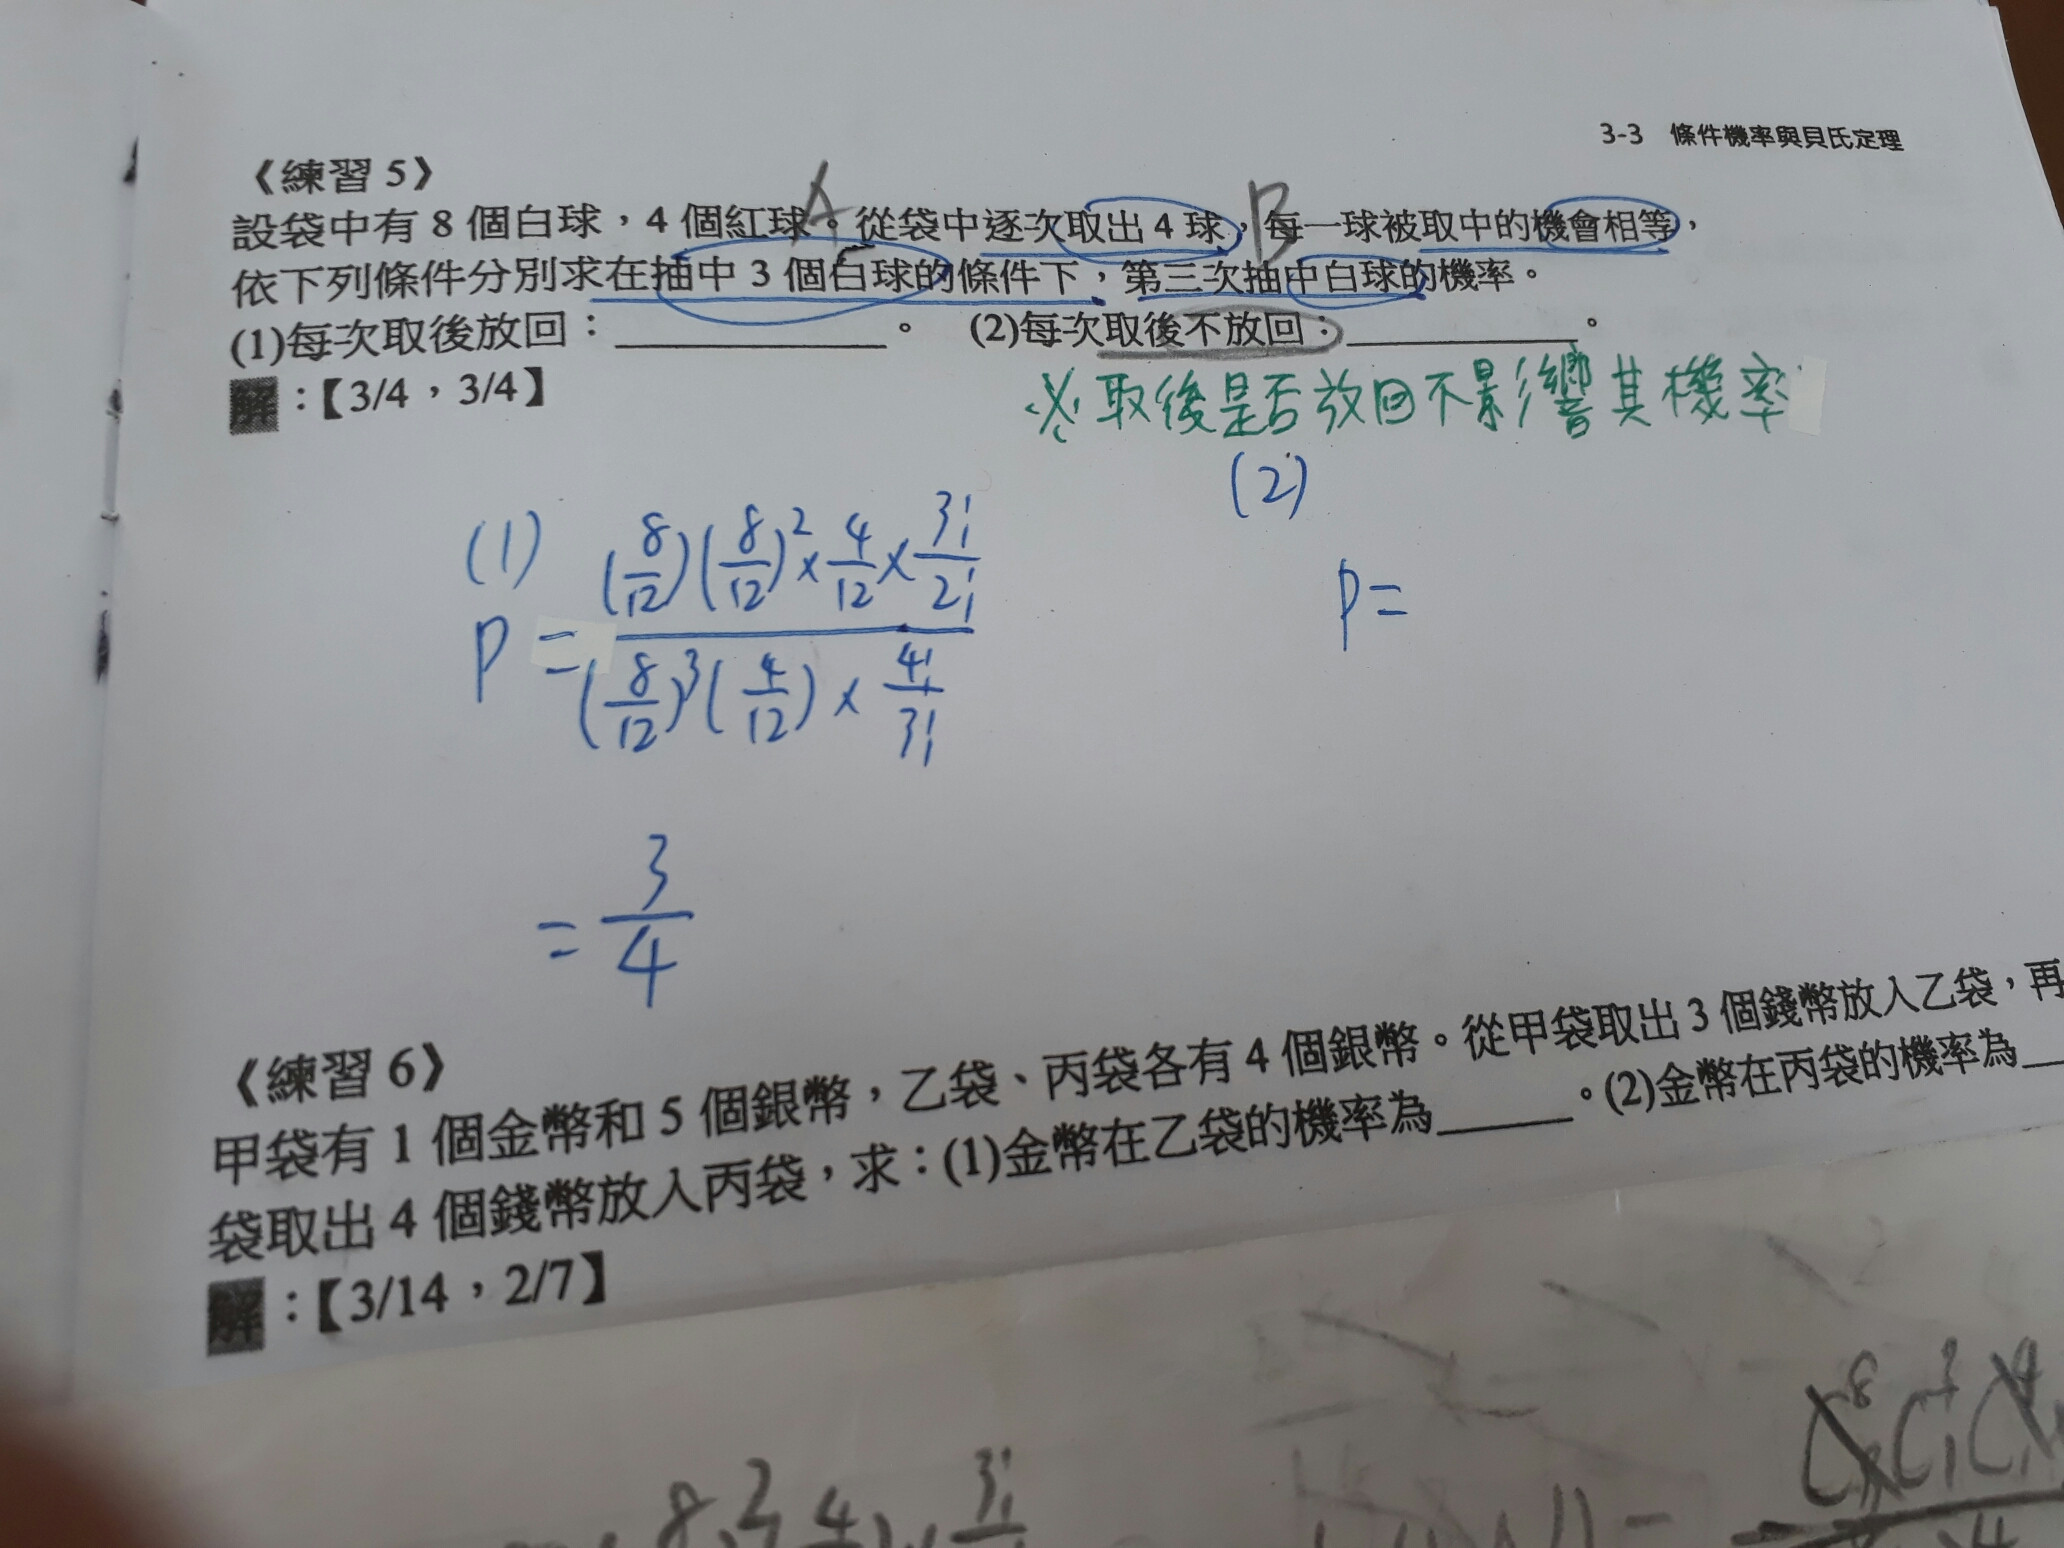 3-3 條件機率與貝氏定理
《練習 5》
A B
設袋中有 8 個白球，4 個紅球。從袋中逐次取出 4 球，每一球被取中的機會相等，
依下列條件分別求在抽中 3 個白球的條件下，第三次抽中白球的機率。
(1)每次取後放回：＿＿＿＿＿。 (2)每次取後不放回：＿＿＿＿＿。
解：【3/4，3/4】
※ 取後是否放回不影響其機率
(1) P = ((8/12)(8/12)²×4/12×3!/2!)/((8/12)³(4/12)×4!/3!)
= 3/4
(2)
P=
《練習 6》
甲袋有 1 個金幣和 5 個銀幣，乙袋、丙袋各有 4 個銀幣。從甲袋取出 3 個錢幣放入乙袋，再
袋取出 4 個錢幣放入丙袋，求：(1)金幣在乙袋的機率為＿＿＿。(2)金幣在丙袋的機率為＿
解：【3/14，2/7】